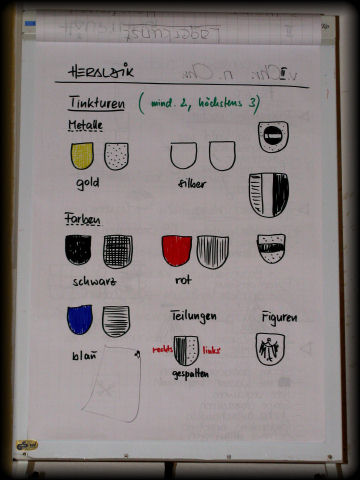 HERALDIK
Tinkturen (mind. 2, höchstens 3)
Metalle
gold silber
Farben
schwarz rot
blau
Teilungen Figuren
rechts links
gespalten